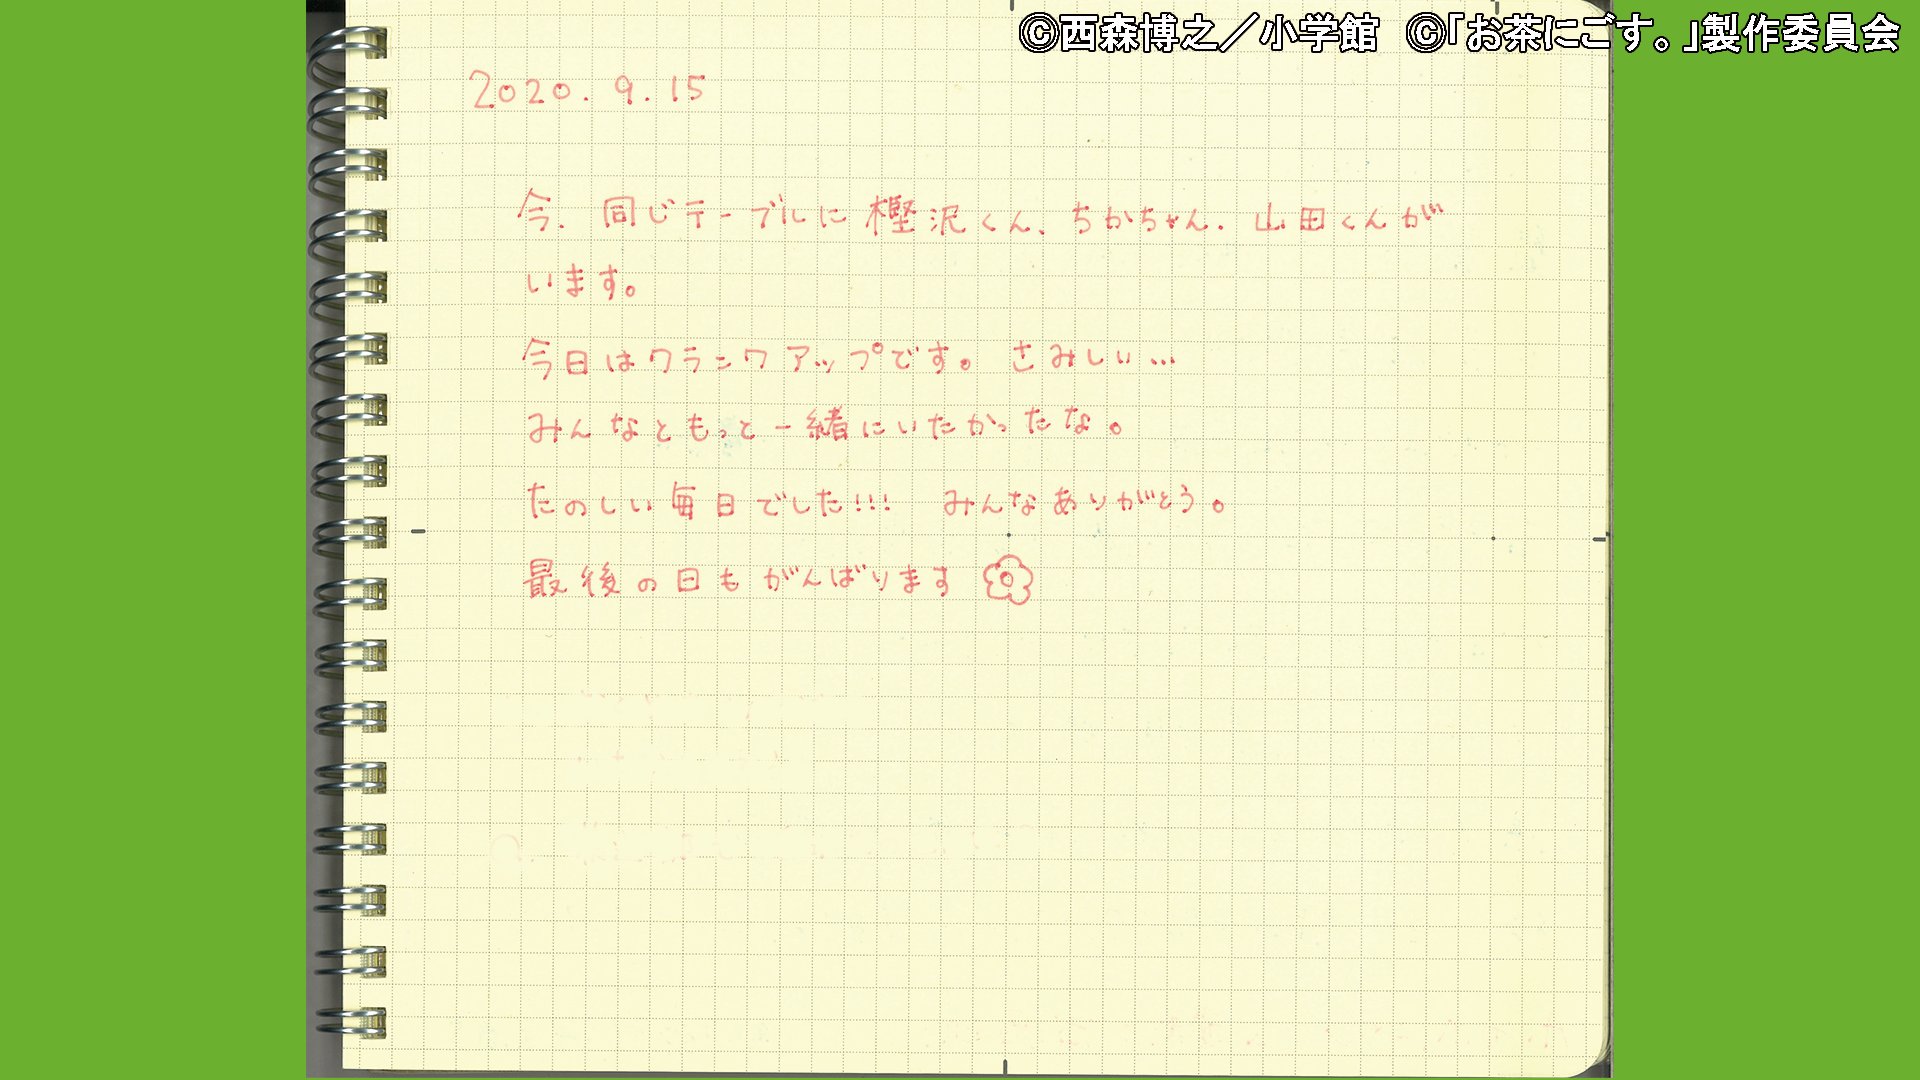 ©西森博之／小学館 ©「お茶にごす。」製作委員会
2020.9.15
今、同じテーブルに樫沢くん、ちかちゃん、山田くんが
います。
今日はクランクアップです。さみしい…
みんなともっと一緒にいたかったな。
たのしい毎日でした!!! みんなありがとう。
最後の日もがんばります